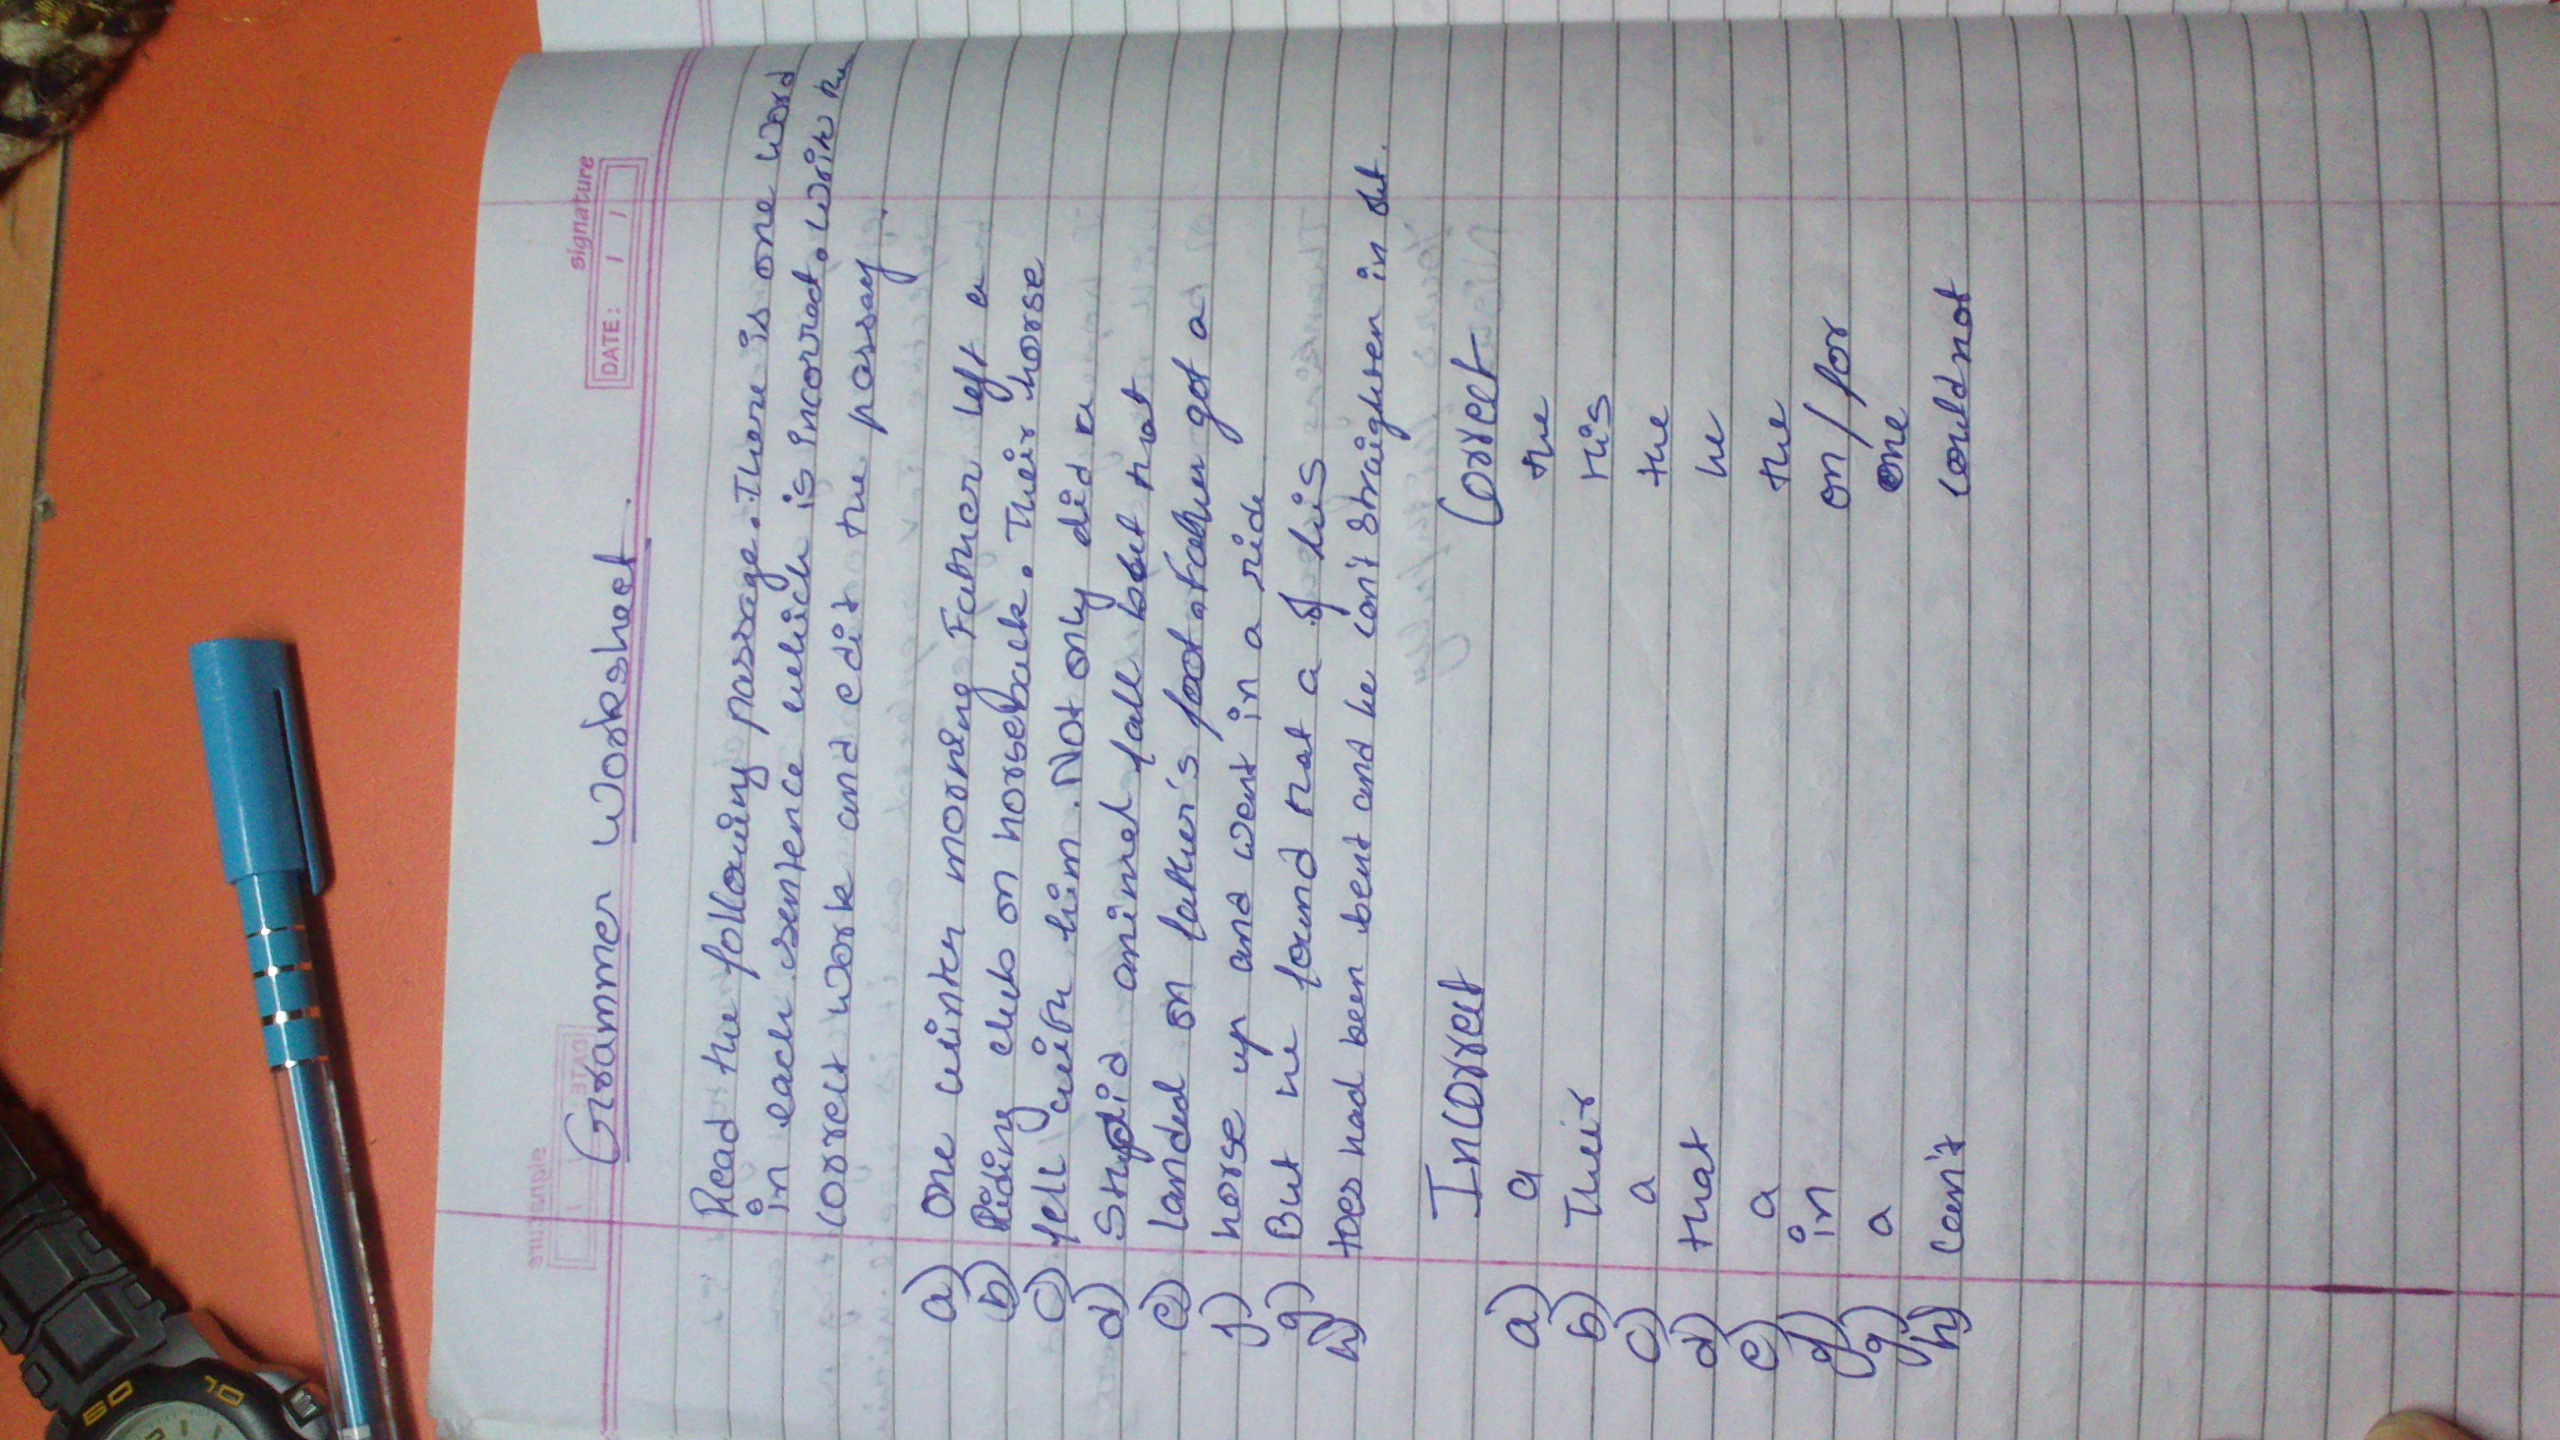 signature
DATE: / /
Grammer Worksheet.
Read the following passage. There is one word
in each sentence which is incorrect. Write the
correct work and edit the passag
a) One winter morning Father left a
b) Riding club on horseback. Their horse
c) fell with him. Not only did a
d) Stupid animal fall but that
e) landed on father's foot. Father got a
f) horse up and went in a ride
g) But he found that a of his
h) toes had been bent and he can't Straighten in out.
Incorrect Correct
a) a the
b) Their His
c) a the
d) that he
e) a the
f) in on / for
g) a one
h) can't could not
60
10